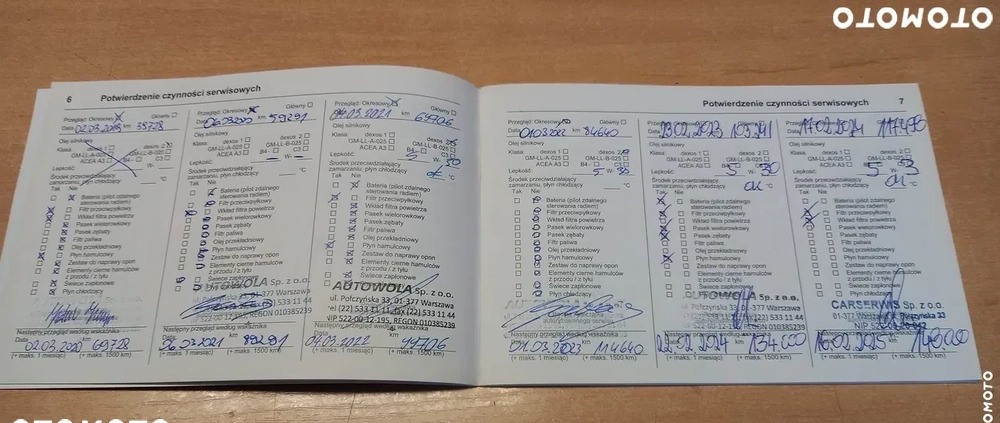 OTOMOTO
6 Potwierdzenie czynności serwisowych
Przegląd: Okresowy Główny
Data 02.03.2019 km 35728
Olej silnikowy
Klasa: dexos 1 dexos 2
GM-LL-A-025 GM-LL-B-025
ACEA A3 B4 C3
Lepkość: W-
Środek przeciwdziałający
zamarzaniu, płyn chłodzący °C
Tak Nie
Bateria (pilot zdalnego
sterowania radiem)
Filtr przeciwpyłkowy
Wkład filtra powietrza
Pasek wielorowkowy
Pasek zębaty
Filtr paliwa
Olej przekładniowy
Płyn hamulcowy
Zestaw do naprawy opon
Elementy cierne hamulców
z przodu / z tyłu
Świece zapłonowe
Płyn chłodzący
Następny przegląd według wskaźnika
Data 02.03.2020 km 69728
(+ maks. 1 miesiąc) (+ maks. 1500 km)
Przegląd: Okresowy Główny
Data 06.03.2020 km 59291
Olej silnikowy
Klasa: dexos 1 dexos 2
GM-LL-A-025 GM-LL-B-025
ACEA A3 B4 C3
Lepkość: W-
Środek przeciwdziałający
zamarzaniu, płyn chłodzący °C
Tak Nie
Bateria (pilot zdalnego
sterowania radiem)
Filtr przeciwpyłkowy
Wkład filtra powietrza
Pasek wielorowkowy
Pasek zębaty
Filtr paliwa
Olej przekładniowy
Płyn hamulcowy
Zestaw do naprawy opon
Elementy cierne hamulców
z przodu / z tyłu
Świece zapłonowe
AUTOWOLA Sp. z o.o.
ul. Połczyńska 33, 01-377 Warszawa
tel (22) 533 11 11, fax (22) 533 11 44
NIP 522-00-12-195, REGON 010385239
Następny przegląd według wskaźnika
06.03.2021 89291
(+ maks. 1 miesiąc) (+ maks. 1500 km)
Przegląd: Okresowy Główny
04.03.2021 km 69706
Olej silnikowy
Klasa: dexos 1 dexos 2
GM-LL-A-025 GM-LL-B-025
ACEA A3 B4 C3
Lepkość: 5 W- 30
Środek przeciwdziałający
zamarzaniu, płyn chłodzący ok °C
Tak Nie
Bateria (pilot zdalnego
sterowania radiem)
Filtr przeciwpyłkowy
Wkład filtra powietrza
Pasek wielorowkowy
Pasek zębaty
Filtr paliwa
Olej przekładniowy
Płyn hamulcowy
Zestaw do naprawy opon
Elementy cierne hamulców
z przodu / z tyłu
Świece zapłonowe
AUTOWOLA Sp. z o.o.
ul. Połczyńska 33, 01-377 Warszawa
tel (22) 533 11 11, fax (22) 533 11 44
NIP 522-00-12-195, REGON 010385239
Następny przegląd według wskaźnika
04.03.2022 99706
(+ maks. 1 miesiąc) (+ maks. 1500 km)
Potwierdzenie czynności serwisowych 7
Przegląd: Okresowy Główny
Data 01.03.2022 km 84640
Olej silnikowy
Klasa: dexos 1 dexos 2
GM-LL-A-025 GM-LL-B-025
ACEA A3 B4 C3
Lepkość: 5 W- 30
Środek przeciwdziałający
zamarzaniu, płyn chłodzący °C
Tak Nie
Bateria (pilot zdalnego
sterowania radiem)
Filtr przeciwpyłkowy
Wkład filtra powietrza
Pasek wielorowkowy
Pasek zębaty
Filtr paliwa
Olej przekładniowy
Płyn hamulcowy
Zestaw do naprawy opon
Elementy cierne hamulców
z przodu / z tyłu
Świece zapłonowe
Płyn chłodzący
Następny przegląd według wskaźnika
01.03.2023 km 114640
(+ maks. 1 miesiąc) (+ maks. 1500 km)
23.02.2023
Olej silnikowy
Klasa: dexos 1 dexos 2
GM-LL-A-025 GM-LL-B-025
ACEA A3 B4 C3
Lepkość: 5 W- 30
Środek przeciwdziałający
zamarzaniu, płyn chłodzący ok °C
Tak Nie
Bateria (pilot zdalnego
sterowania radiem)
Filtr przeciwpyłkowy
Wkład filtra powietrza
Pasek wielorowkowy
Pasek zębaty
Filtr paliwa
Olej przekładniowy
Płyn hamulcowy
Zestaw do naprawy opon
Elementy cierne hamulców
z przodu / z tyłu
Świece zapłonowe
AUTOWOLA Sp. z o.o.
22.02.2024 134000
(+ maks. 1 miesiąc) (+ maks. 1500 km)
17.02.2024 117490
Olej silnikowy
Klasa: dexos 1 dexos 2
GM-LL-A-025 GM-LL-B-025
ACEA A3 B4 C3
Lepkość: 5 W-
Środek przeciwdziałający
zamarzaniu, płyn chłodzący ok °C
Tak Nie
Bateria (pilot zdalnego
sterowania radiem)
Filtr przeciwpyłkowy
Wkład filtra powietrza
Pasek wielorowkowy
Pasek zębaty
Filtr paliwa
Olej przekładniowy
Płyn hamulcowy
Zestaw do naprawy opon
Elementy cierne hamulców
z przodu / z tyłu
Świece zapłonowe
Płyn chłodzący
CARSERWIS Sp. z o.o.
16.02.2025
(+ maks. 1 miesiąc) (+ maks. 1500 km)
OTOMOTO
OTOMOTO